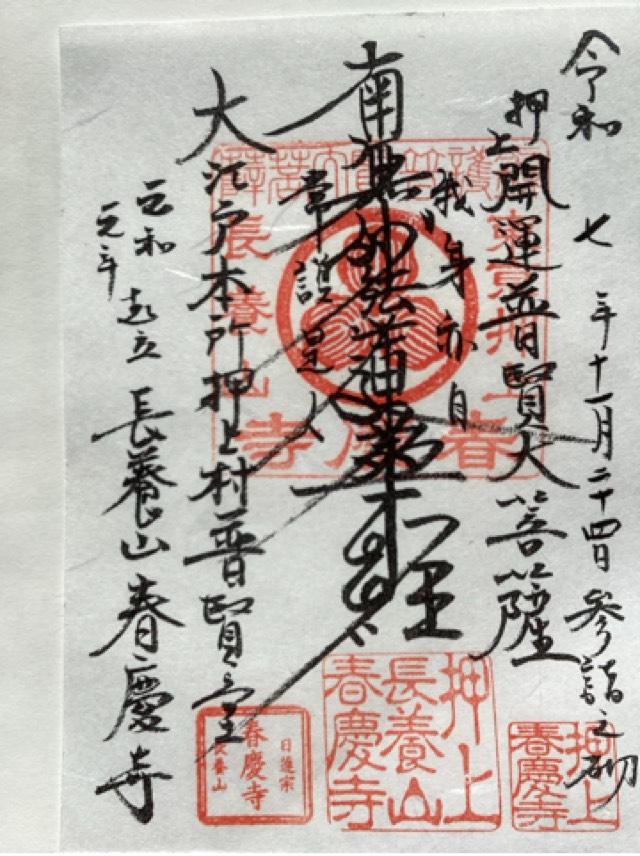 令和七年十一月二十四日参詣之砌
押上開運普賢大菩薩
我身亦自
南無妙法蓮華経
常護是人
大江戸本所押上村普賢堂
元和元年起立長養山春慶寺
東京押上
春慶寺
長養山
押上
長養山
春慶寺
日蓮宗
春慶寺
長養山
押上
春慶寺